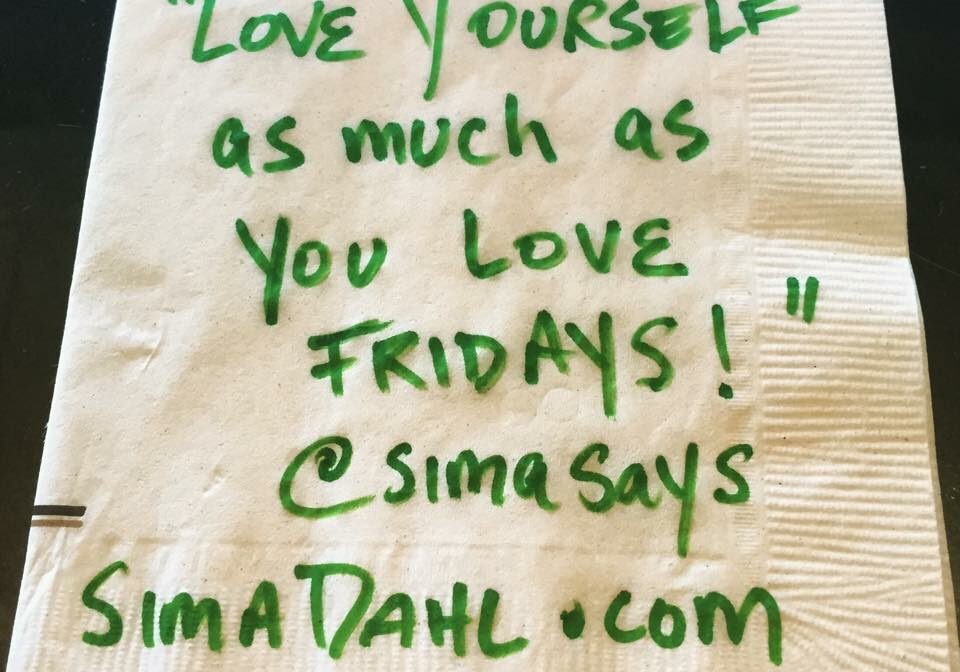 "LOVE YOURSELF
as much as
You LOVE
FRIDAYS!"
@simasays
SIMADAHL.com